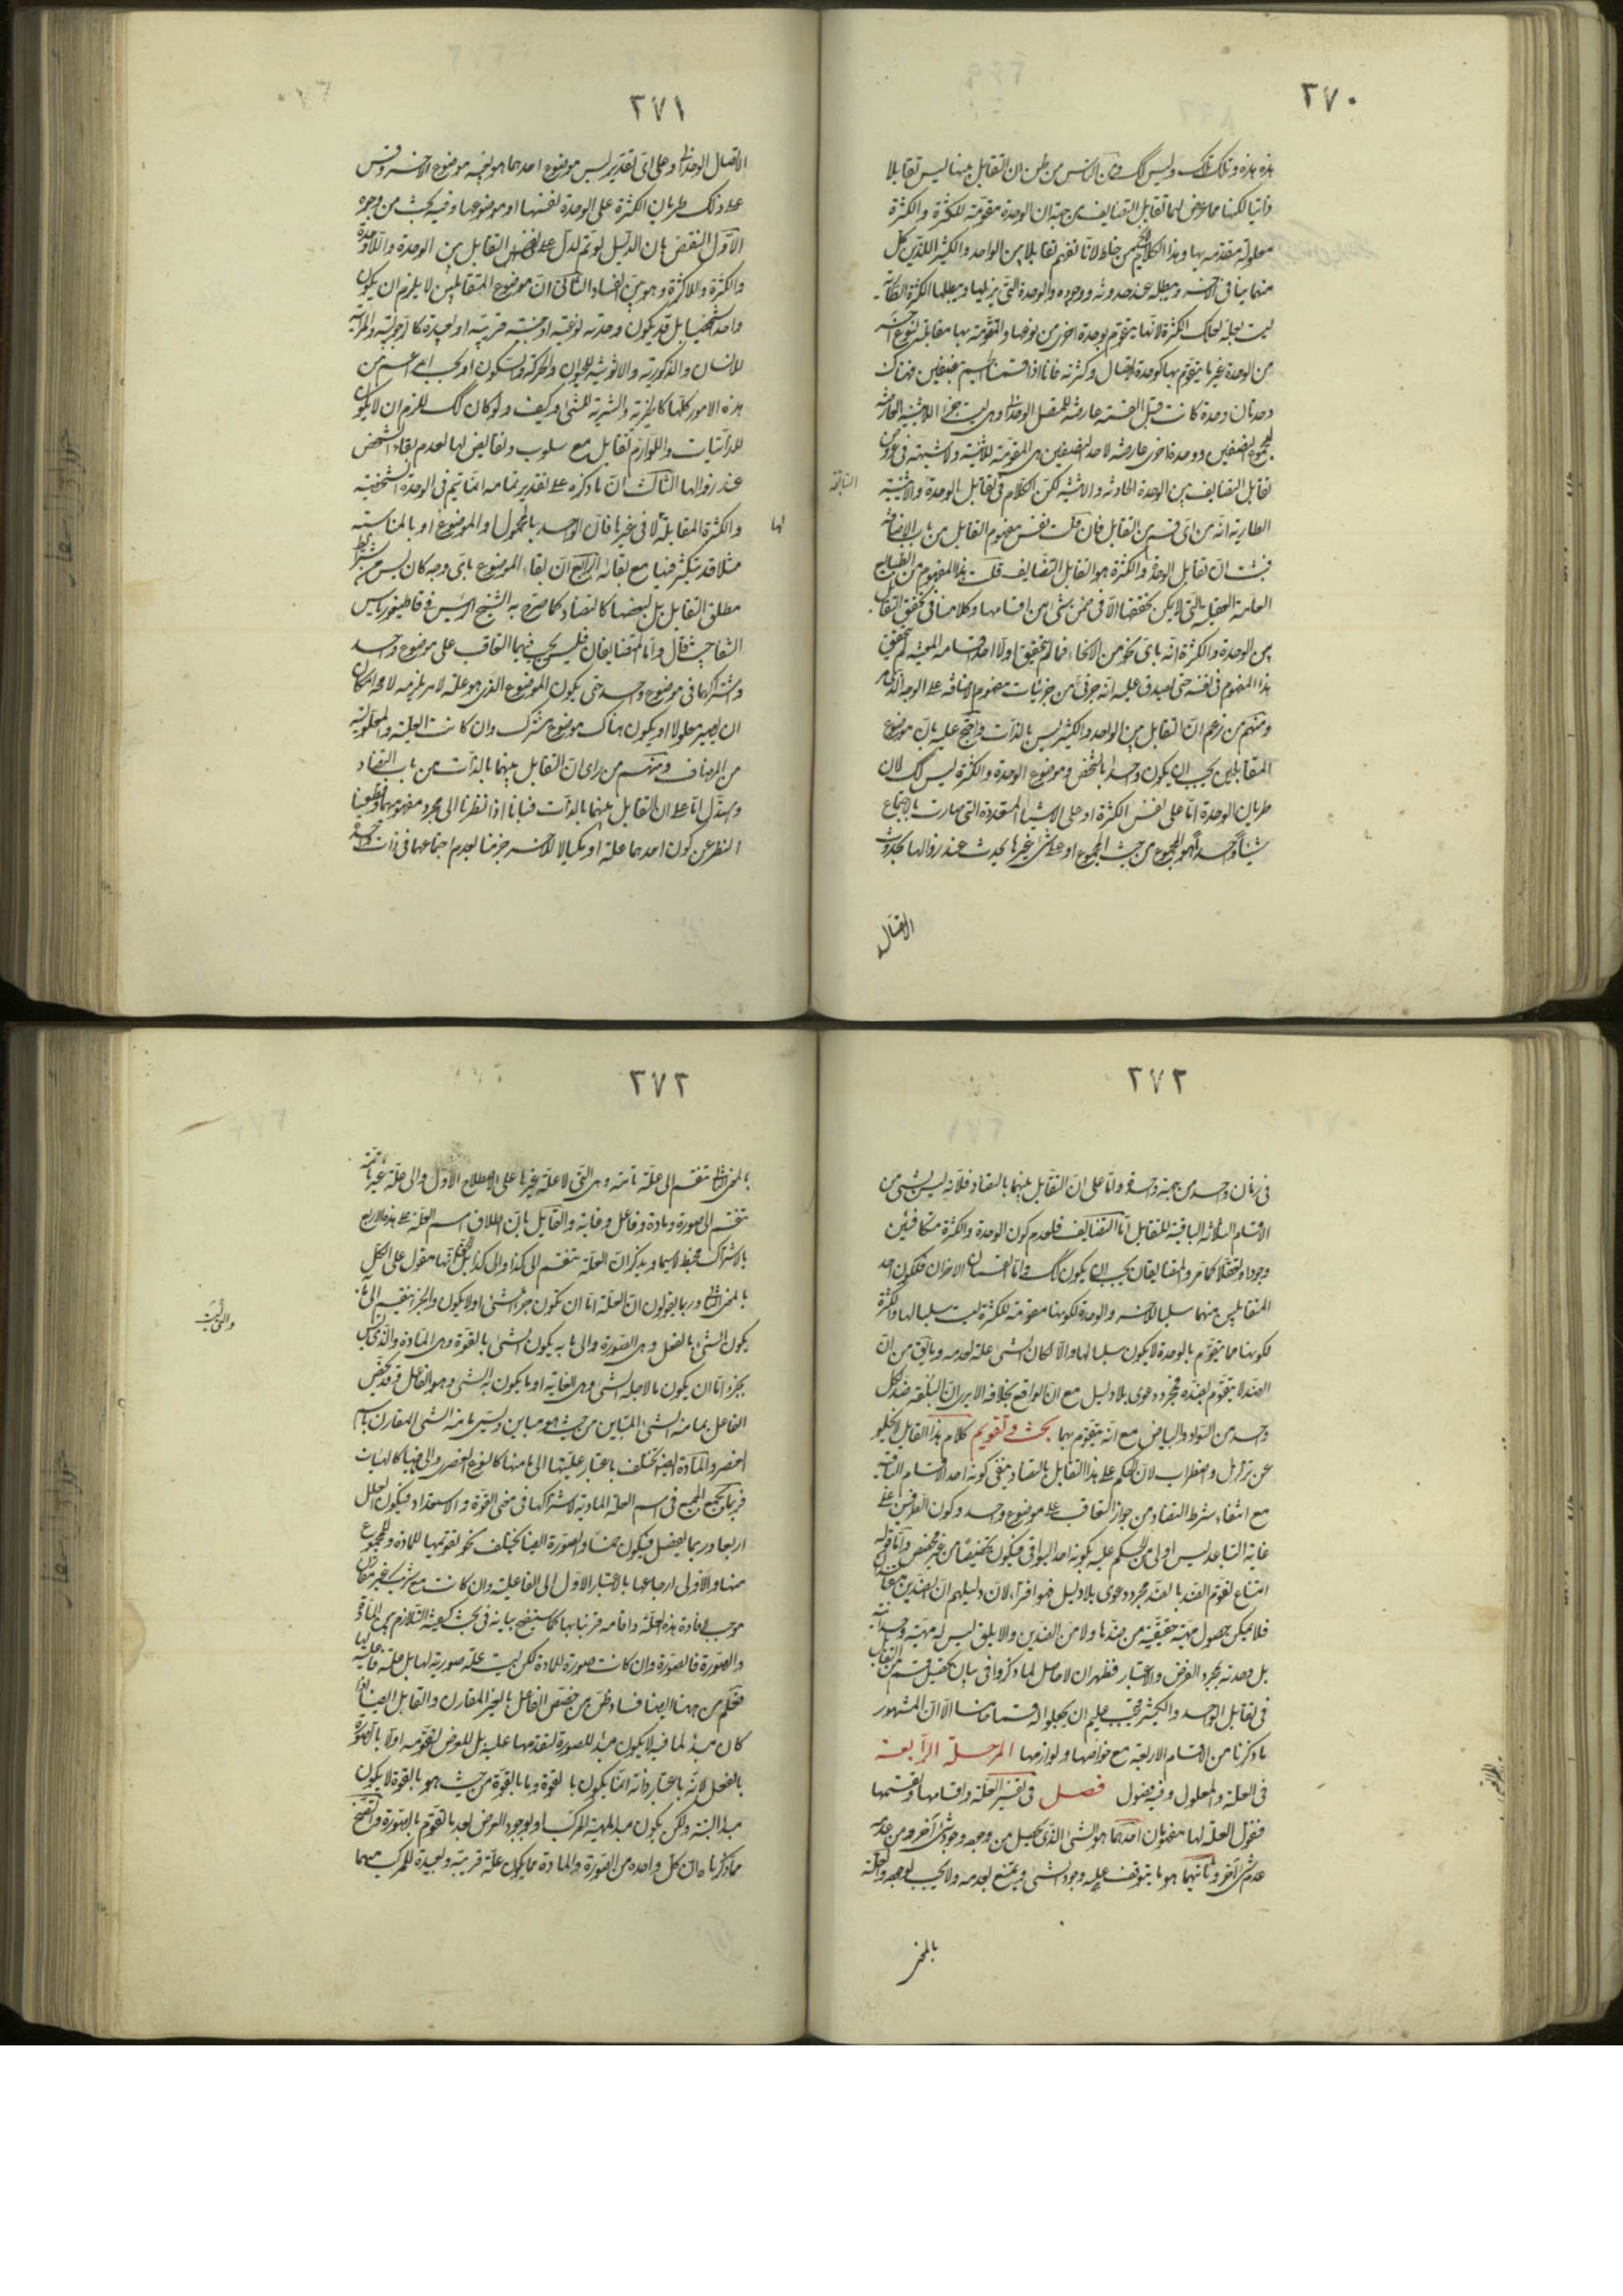 ٢٧٠
هذه هذه وتلك تلك وليس كك ومن الناس من ظن ان التقابل بينهما ليس تقابلا
ذاتيا لكنهما مما عرض لهما تقابل التضايف من جهة ان الوحدة مقومة للكثرة والكثرة
معلولة متقدمة بها وهذا الكلام من خلط لانا نفهم تقابلا بين الواحد والكثير اللذين كل
منهما ينافى الآخر ويبطله عند حدوثه ووجوده والوحدة التى يزيلها ويبطلها الكثرة الطارية
ليست بعلة لتلك الكثرة لانها يتقوم بوحدة اخرى من نوعها والمقومة بها مقابلة لنوع آخر
من الوحدة غير ما يتقوم بها كوحدة الاتصال وكثرته فانا اذا قسمنا الجسم بنصفين فهناك
وحدتان وحدة كانت قبل القسمة عارضة للمتصل الوحدانى وهى ليست جزءا للاثنينية العارضة
لمجموع النصفين ووحدة اخرى عارضة لاحد النصفين هى المقومة للاثنينية ولا شبهة فى عروض
تقابل التضايف بين الوحدة الحادثة والاثنينية لكن الكلام فى تقابل الوحدة والاثنينية
السابقة
الطارية انه من اى قسم من التقابل فان قلت نفس مفهوم التقابل من باب الاضافة
فثبت ان تقابل الوحدة والكثرة هو التقابل التضايف قلت هذا المفهوم من الطبايع
العامة العقلية التى لا يمكن تحققها الا فى ضمن شىء من اقسامها وكلامنا فى تحقق التقابل
بين الوحدة والكثرة انه باى نحو من الانحاء فما لم يتحقق اولا احد اقسامه المعينة لم يتحقق
هذا المفهوم فى نفسه حتى يصدق عليه انه جزئى من جزئيات مفهوم الاضافة على الوجه الذى مر
ومنهم من زعم ان التقابل بين الواحد والكثير ليس بالذات واحتج عليه بان موضوع
المتقابلين يجب ان يكون واحدا بالشخص وموضوع الوحدة والكثرة ليس كك لان
طريان الوحدة اما على نفس الكثرة او على الاشياء المتعددة التى صارت بالاجتماع
شيئا واحدا هو المجموع من حيث المجموع او على شىء غيرها يحدث عند زوالها كحدوث
الاتصال
٢٧١
الاتصال الوحدانى وعلى اى تقدير ليس موضوع احدهما هو بعينه موضوع الآخر وقس
على ذلك طريان الكثرة على الوحدة لنفسها او موضوعها وفيه بحث من وجوه
الاول النقض بان الدليل لو تم لدل على نفى التقابل بين الوحدة واللاوحدة
والكثرة واللاكثرة وهو بين الفساد الثانى ان موضوع المتقابلين لا يلزم ان يكون
واحدا شخصيا بل قد يكون وحدته نوعية او جنسية قريبة او بعيدة كالرجولية والمرئية
للانسان والذكورية والانوثية للحيوان والحركة والسكون او بحسب امر اعم من
هذه الامور كلها كالخيرية والشرية للشىء وكيف ولو كان كك للزم ان لا يكون
للذاتيات واللوازم تقابل مع سلوب ونقايض لها لعدم بقاء الشخص
عند زوالها الثالث ان ما ذكره على تقدير تمامه انما يتم فى الوحدة الشخصية
والكثرة المقابلة لها لا فى غيرها فان الواحد بالمحمول او الموضوع او بالمناسبة
مثلا قد يتكثر فيها مع بقائه الرابع ان بقاء الموضوع باى وجه كان ليس من شرايط
مطلق التقابل بل بعضها كالتضاد كما صرح به الشيخ الرئيس فى قاطيغورياس
الشفا حيث قال واما المتضايفان فليس يجب فيهما التعاقب على موضوع واحد
واشتراكهما فى موضوع واحد حتى يكون الموضوع الذى هو علة لامر يلزمه لا محالة امكان
ان يصير معلولا او يكون هناك موضوع مشترك وان كانت العلية والمعلولية
من المضاف ومنهم من راى ان التقابل بينهما بالذات من باب التضاد
واستدل اما على ان التقابل بينهما بالذات فبانا اذا نظرنا الى مجرد مفهومهما وقطعنا
النظر عن كون احدهما علة او مكيالا للآخر جزمنا بعدم اجتماعهما فى ذات واحدة
٢٧٢
فى زمان واحد من جهة واحدة واما على ان التقابل بينهما بالتضاد فلانه ليس بشىء من
الاقسام الثلاثة الباقية للتقابل اما التضايف فلعدم كون الوحدة والكثرة متكافئين
وجودا وتعقلا كما مر والمتضايفان يجب ان يكون كك واما القسمان الاخران فلكون احد
المتقابلين منهما سلبا للآخر والوحدة لكونها مقومة للكثرة ليست سلبا لها والكثرة
لكونها مما يتقوم بالوحدة لا يكون سلبا لها والا لكان الشىء علة لعدمه وما يتق من ان
الضد لا يتقوم بضده مجرد دعوى بلا دليل مع ان الواقع بخلافه الا يرى ان البلقة ضد لكل
واحد من السواد والبياض مع انه يتقوم بهما بحث وتقويم كلام هذا القايل لا يخلو
عن تزلزل واضطراب لان الحكم على هذا التقابل بالتضاد ينفى كونه احد الاقسام الباقية
مع انتفاء شرط التضاد من جواز التعاقب على موضوع واحد وكون الطرفين على
غاية التباعد ليس اولى من الحكم عليه بكونه احد البواقى فيكون تخصيصا من غير مخصص واما قوله
امتناع تقوم الضد بالضد مجرد دعوى بلا دليل فهو افتراء لان دليلهم ان الضدين
فلا يمكن حصول مهية حقيقية من ضدها ولا من الضدين والابلق ليس له مهية وحدانية
بل وحدته بمجرد الفرض والاعتبار فظهر ان لا حاصل لما ذكروا فى بيان تحصيل قسم من التقابل
فى تقابل الواحد والكثير فيجب عليهم ان يجعلوا له قسما خامسا الا ان المشهور
ما ذكرنا من الاقسام الاربعة مع خواصها ولوازمها المرحلة الرابعة
فى العلة والمعلول وفيه فصول فصل فى تفسير العلة واقسامها وتقسيمها
فنقول العلة لها مفهومان احدهما هو الشىء الذى يحصل من وجوده وجود شىء آخر ومن عدمه
عدم شىء آخر وثانيهما هو ما يتوقف عليه وجود الشىء ويمتنع بعدمه ولا يجب بوجوده والعلة
بالمعنى
٢٧٣
بالمعنى الثانى تنقسم الى علة تامة وهى التى لا علة غيرها على الاصطلاح الاول والى علة غير تامة
تنقسم الى صورة ومادة وفاعل وغاية والقايل بان اطلاق اسم العلة على هذه الاربع
بالاشتراك مخبط لا سيما ويذكر ان العلة تنقسم الى كذا والى كذا بل انها مقول على الكل
بالمعنى الثانى وربما يقولون ان العلة اما ان تكون جزء الشىء او لا يكون والجزء ينقسم الى ما به
يكون الشىء بالفعل وهى الصورة والى ما به يكون الشىء بالقوة وهى المادة والذى ليس
بجزء اما ان يكون ما لاجله الشىء وهى الغاية او ما يكون به الشىء وهو الفاعل وقد يخص
الفاعل بما منه الشىء المباين من حيث هو مباين ويسمى ما منه الشىء المقارن باسم
العنصر والمادة ايضا تختلف باعتبار عليتها الى ما منها كالنوع العنصرى والى ما فيها كالهيئات
فربما يجمع الجميع فى اسم العلة المادية لاشتراكها فى معنى القوة والاستعداد فيكون العلل
اربعا وربما يفصل فيكون خمسا والصورة ايضا يختلف نحو تقويمها للمادة وللمجموع
منها والاولى ارجاعها بالاعتبار الاول الى الفاعلية وان كانت مع شريك غير مقارن
موجب لافادة هذه العلة واقامة قرينها بها كما سيتضح بيانه فى بحث كيفية التلازم بين المادة
والصورة فالصورة وان كانت صورة للمادة لكن ليست علة صورية لها بل علة فاعلية لها
فعلم من ههنا ايضا فساد ظن من خصص الفاعل بالغير المقارن والقابل ايضا اذا
كان مبدأ لما فيه لا يكون مبدأ للصورة لتقدمها عليه بل للعرض لتقومه اولا بالصورة
بالفعل لانه باعتبار ذاته انما يكون بالقوة وما بالقوة من حيث هو بالقوة لا يكون
مبدأ البتة ولكن يكون مبدأ لمهية المركب او لوجود العرض بعد ما تقوم بالصورة واتضح
مما ذكرناه ان كل واحد من الصورة والمادة مما يكون علة قريبة وبعيدة للمركب منهما